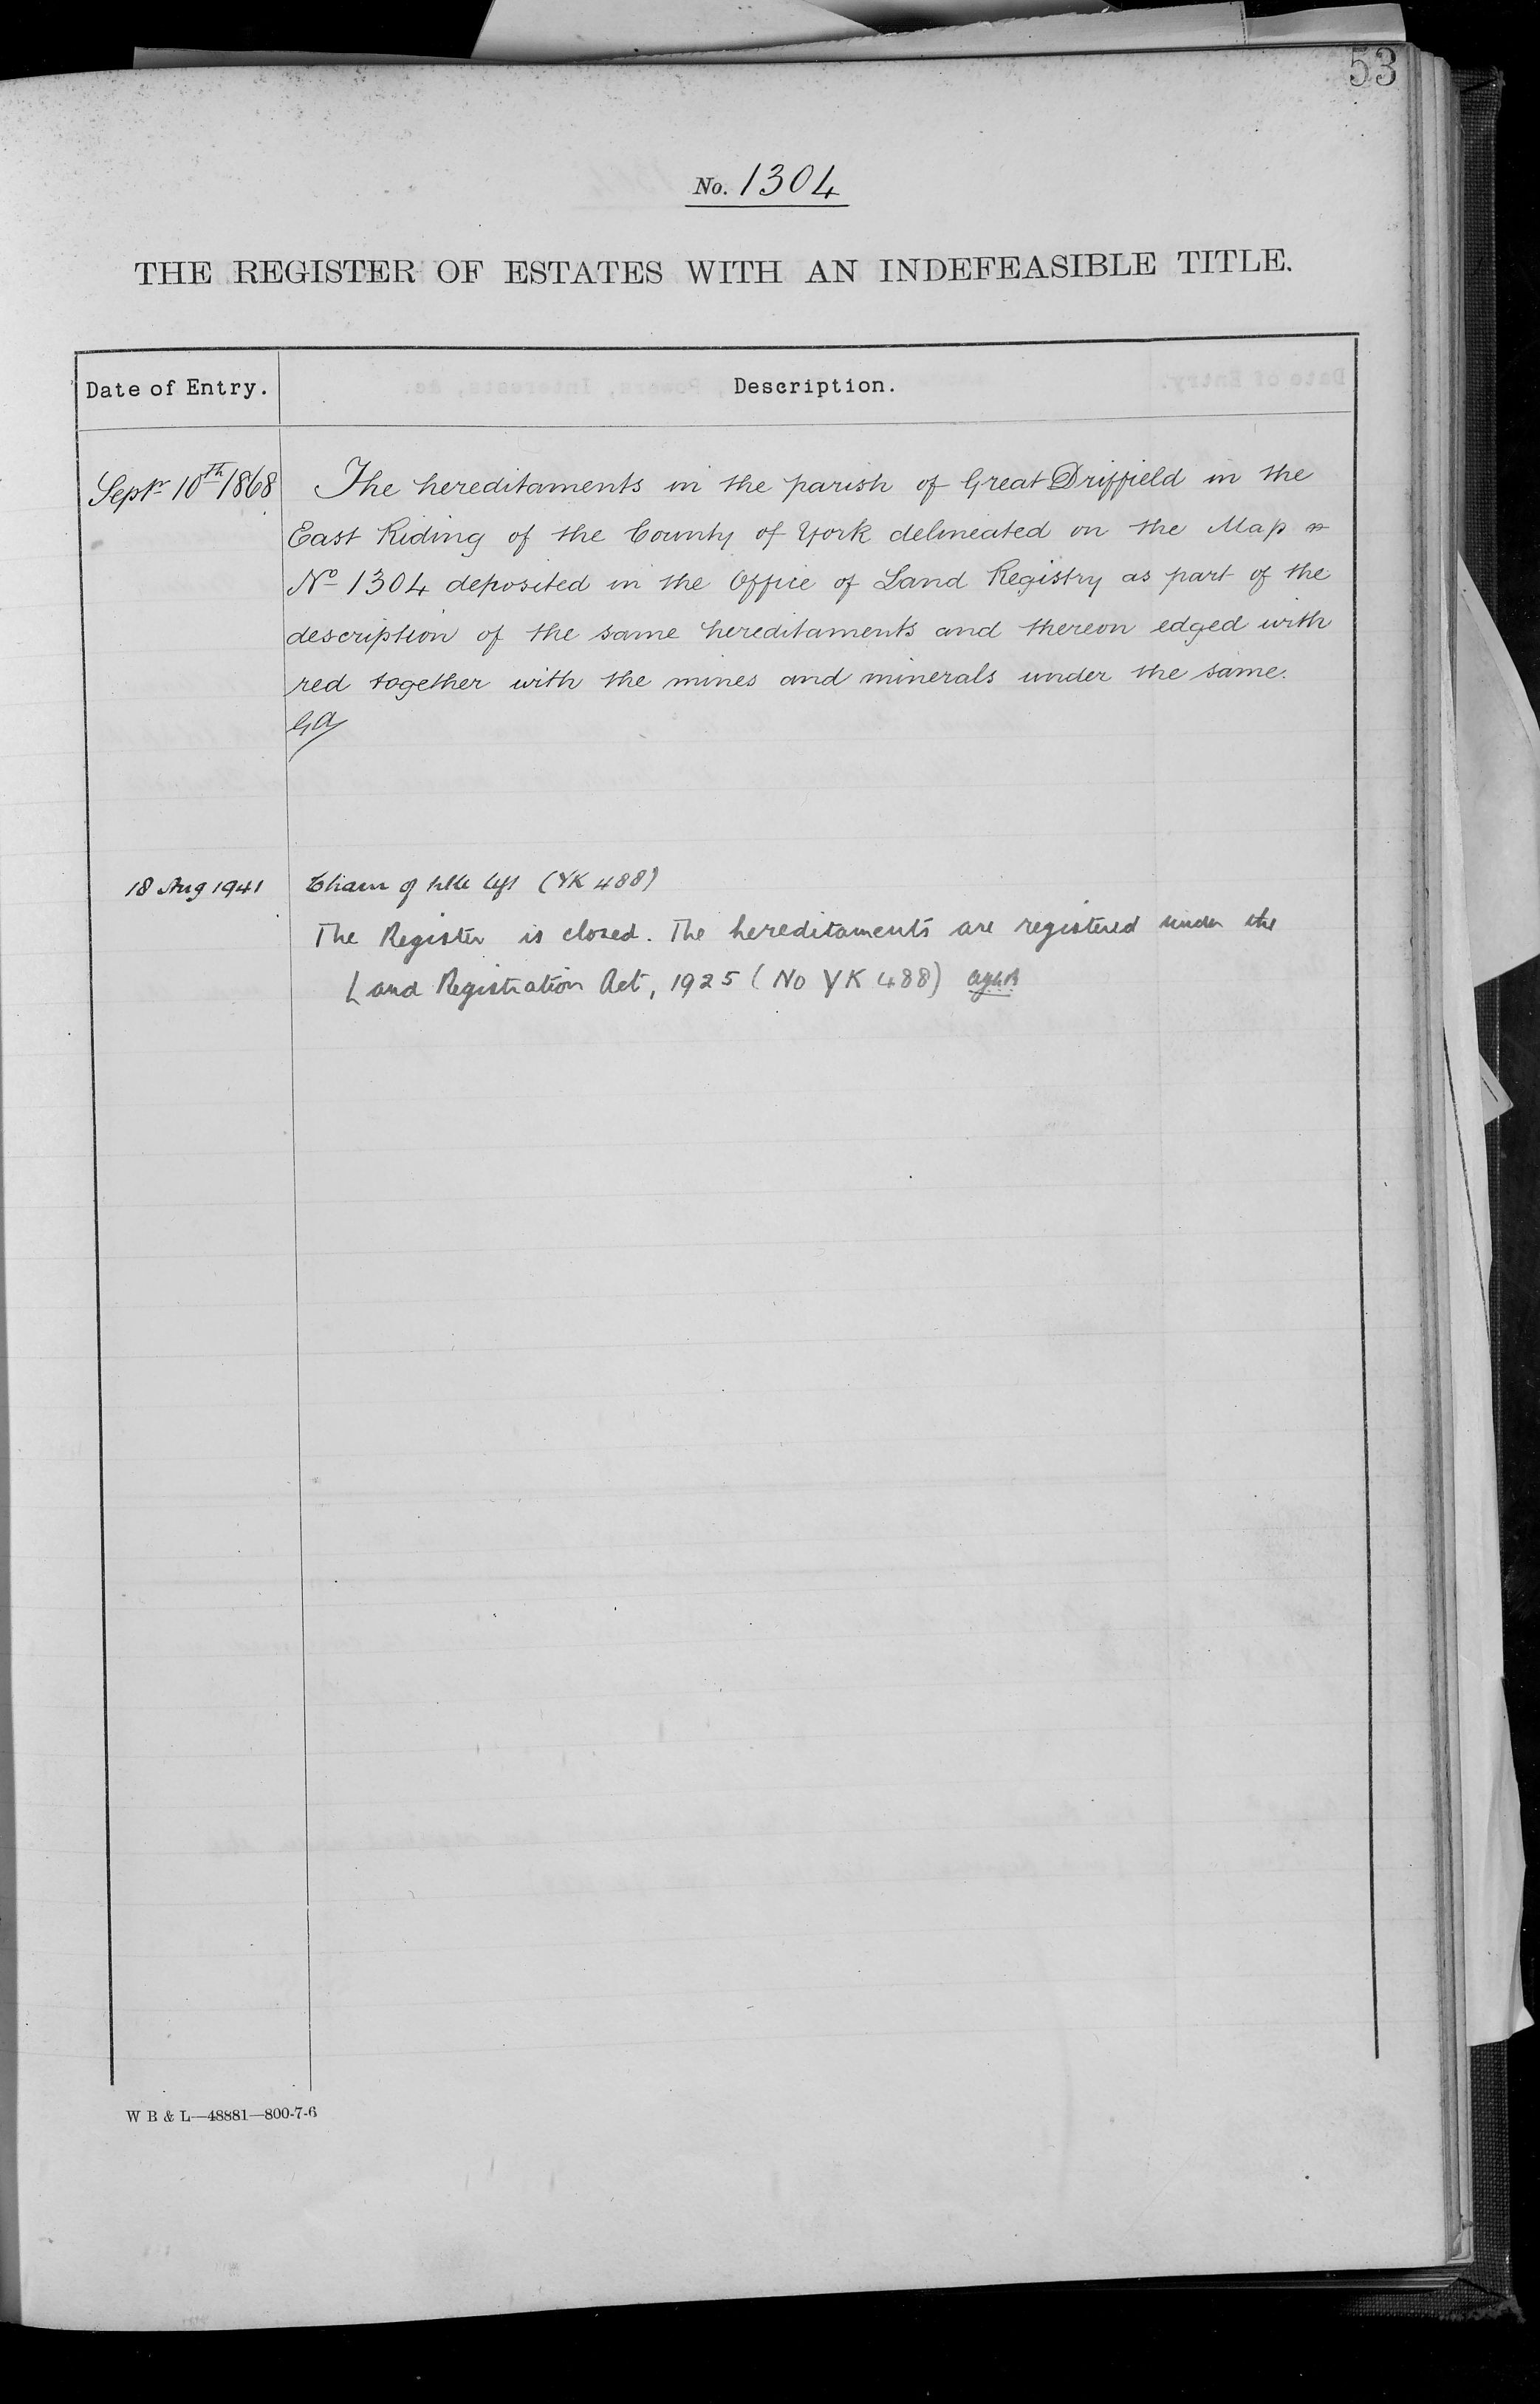 53
No. 1304
THE REGISTER OF ESTATES WITH AN INDEFEASIBLE TITLE.
Date of Entry. Description.
Septr 10th 1868 The hereditaments in the parish of Great Driffield in the
East Riding of the County of York delineated on the Map
No 1304 deposited in the Office of Land Registry as part of the
description of the same hereditaments and thereon edged with
red together with the mines and minerals under the same.
18 Aug 1941 of title (YK 488)
The Register is closed. The hereditaments are registered under the
Land Registration Act, 1925 (No YK 488)
W B & L—48881—800-7-6